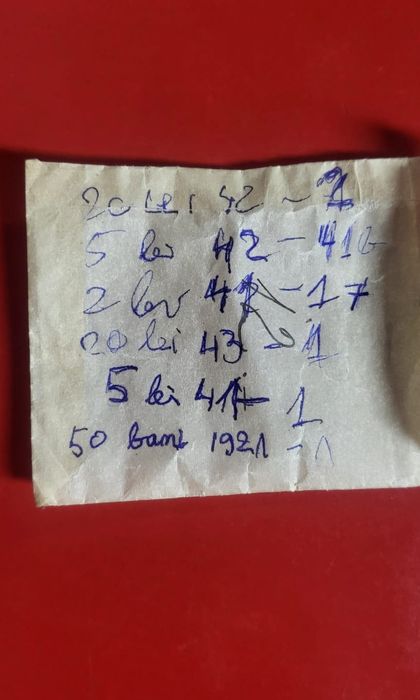 20 lei 42 - 1
5 lei 42 - 41
2 lei 41 - 17
20 lei 43 - 1
5 lei 41 - 1
50 bani 1921 - 1